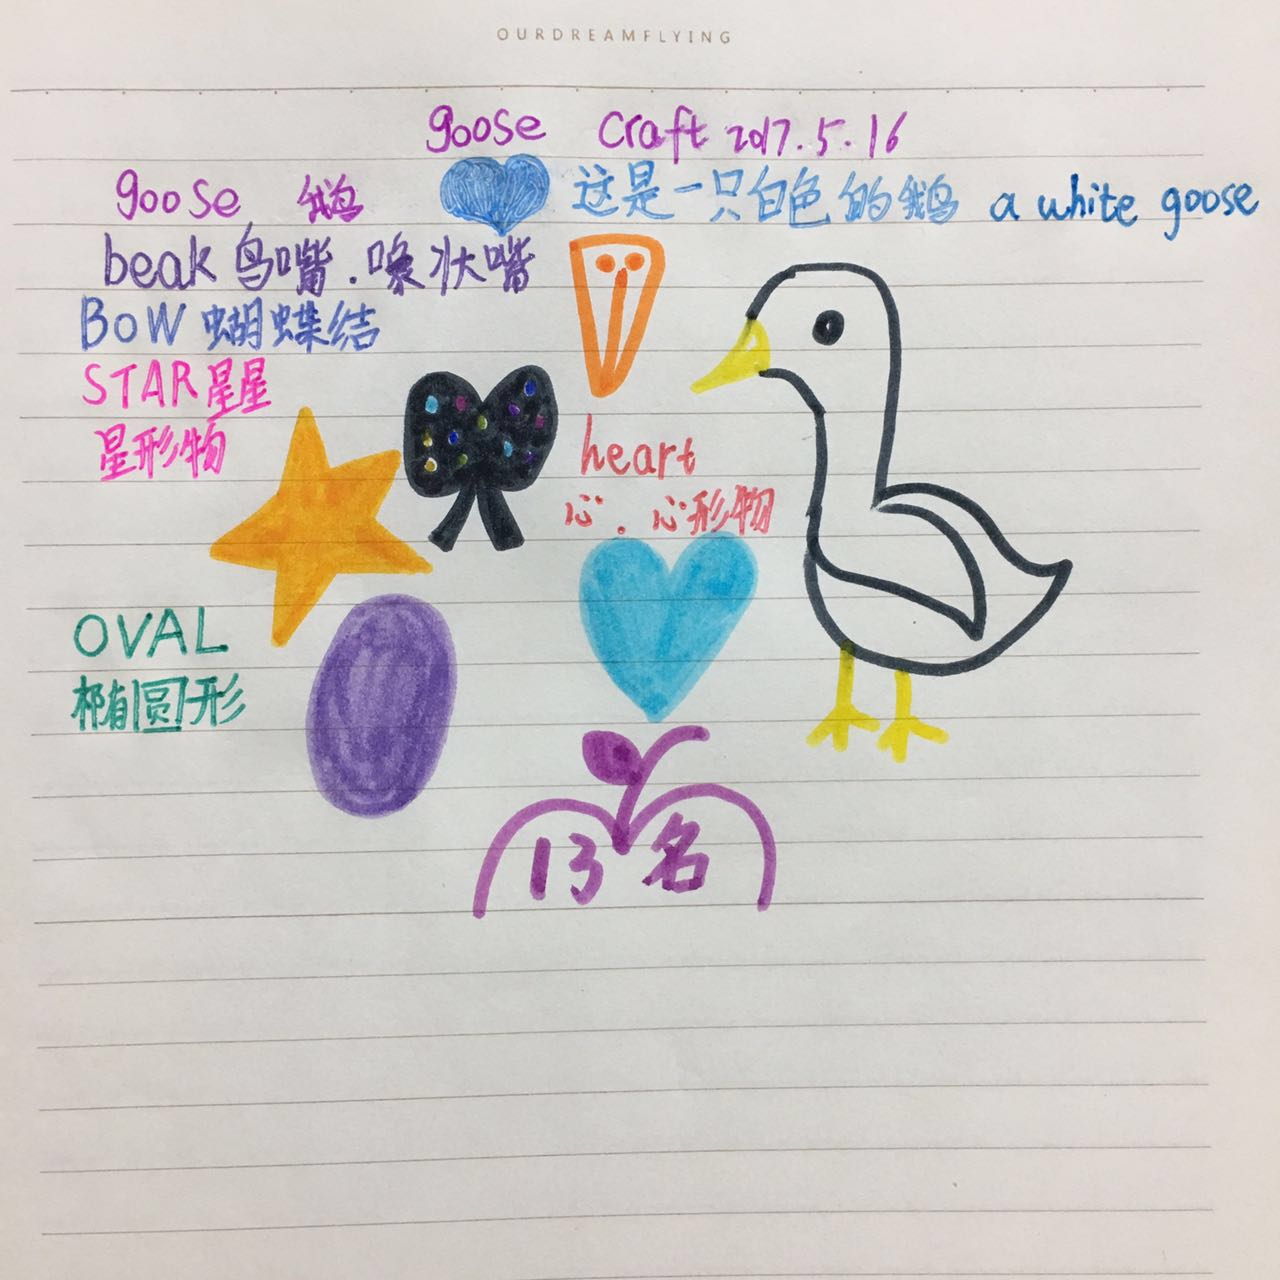 OURDREAMFLYING
goose craft 2017.5.16
goose 鹅 这是一只白色的鹅 a white goose
beak 鸟嘴.喙状嘴
BOW 蝴蝶结
STAR星星
星形物
heart
心.心形物
OVAL
椭圆形
13名